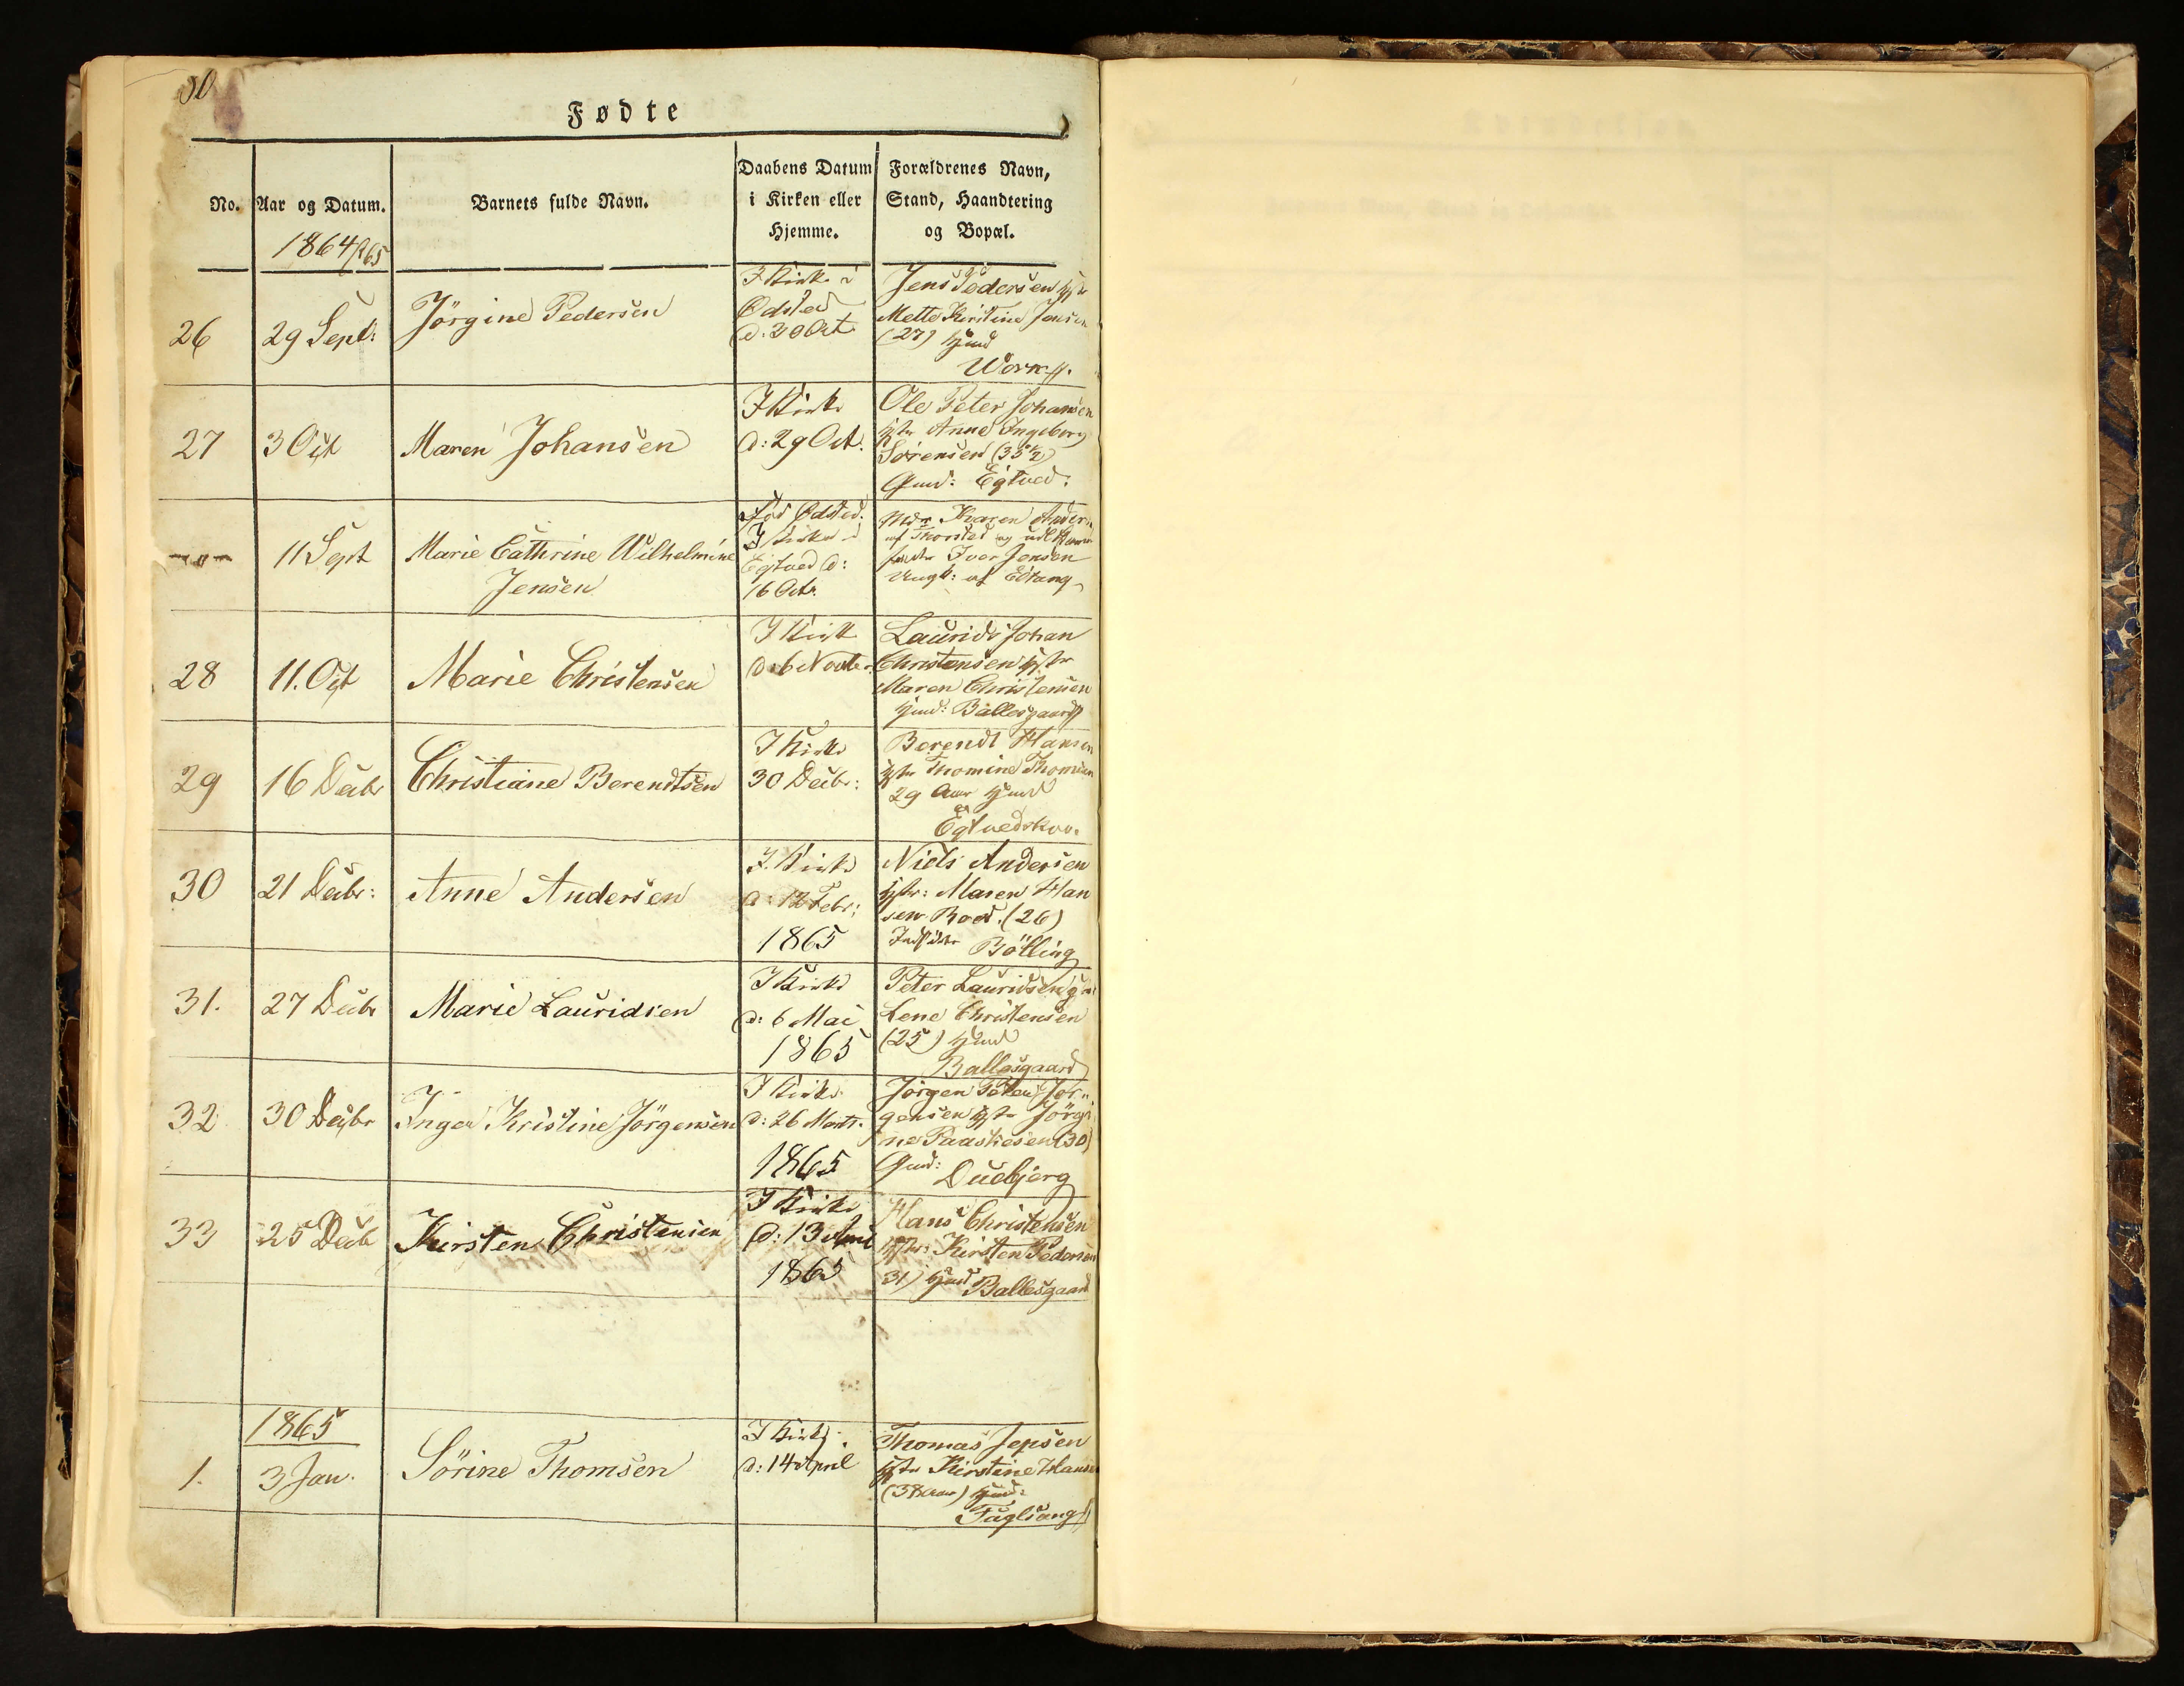 Fødte
No.
Aar og Datum.
Barnets fulde Navn.
Daabens Datum
i Kirken eller
Hjemme.
Forældrenes Navn,
Stand, Haandtering
og Bopæl.
1864/65
26
29 Sept:
Jörgine Pedersen
I Kirke i
Ödsted
d: 30 Oct
Jens Pedersen
Mette Kirstine Jensen
(27) Hmd
27
3 Oct
Maren Johansen
I Kirke
d: 29 Oct.
Ole Peter Johansen
Hstr Anne Ingeborg
Sørensen (35½)
Gmd: Egtved.
11 Sept
Marie Cathrine Wilhelmine
Jensen
Ödsted.
I Kirke i
Egtved d:
16 Octr.
Karen Ander
af Thorsted og
Iver Jensen
Ungk: af
28
11. Oct
Marie Christensen
I Kirke
d: 6 Novbr.
Laurids Johan
Christensen Hstr
Maren Christensen
Hmd: Ballesgaard
29
16 Decbr
Christiane Berendtsen
I Kirke
30 Decbr:
Berendt Hansen
Hstr Thomine Thomsen
29 Aar Hmd
Egtvedskov.
30
21 Decbr:
Anne Andersen
I Kirke
d: 12 Febr:
1865
Niels Andersen
Hstr: Maren Han
sen Roed. (26)
Indsidder Bölling
31.
27 Decbr
Marie Lauridsen
I Kirke
d: 6 Mai
1865
Peter Lauridsen
Lene Christensen
(25) Hmd
Ballesgaard
32
30 Decbr
Inger Kristine Jörgensen
I Kirke
d: 26 Marts.
1865
Jörgen Peter Jör
gensen Hstr Jörgi
ne Paaskesen (30)
Gmd: Duebjerg
33
25 Decb
Kirsten Christensen
I Kirke
d: 13 April
1865
Hans Christensen
Hstr: Kirsten Pedersen
31) Hmd Ballesgaard
1865
1.
3 Jan.
Sörine Thomsen
I Kirke
d: 14 April
Thomas Jepsen
Hstr Kirstine Hansen
(38 Aar) Hmd:
Fuglsang